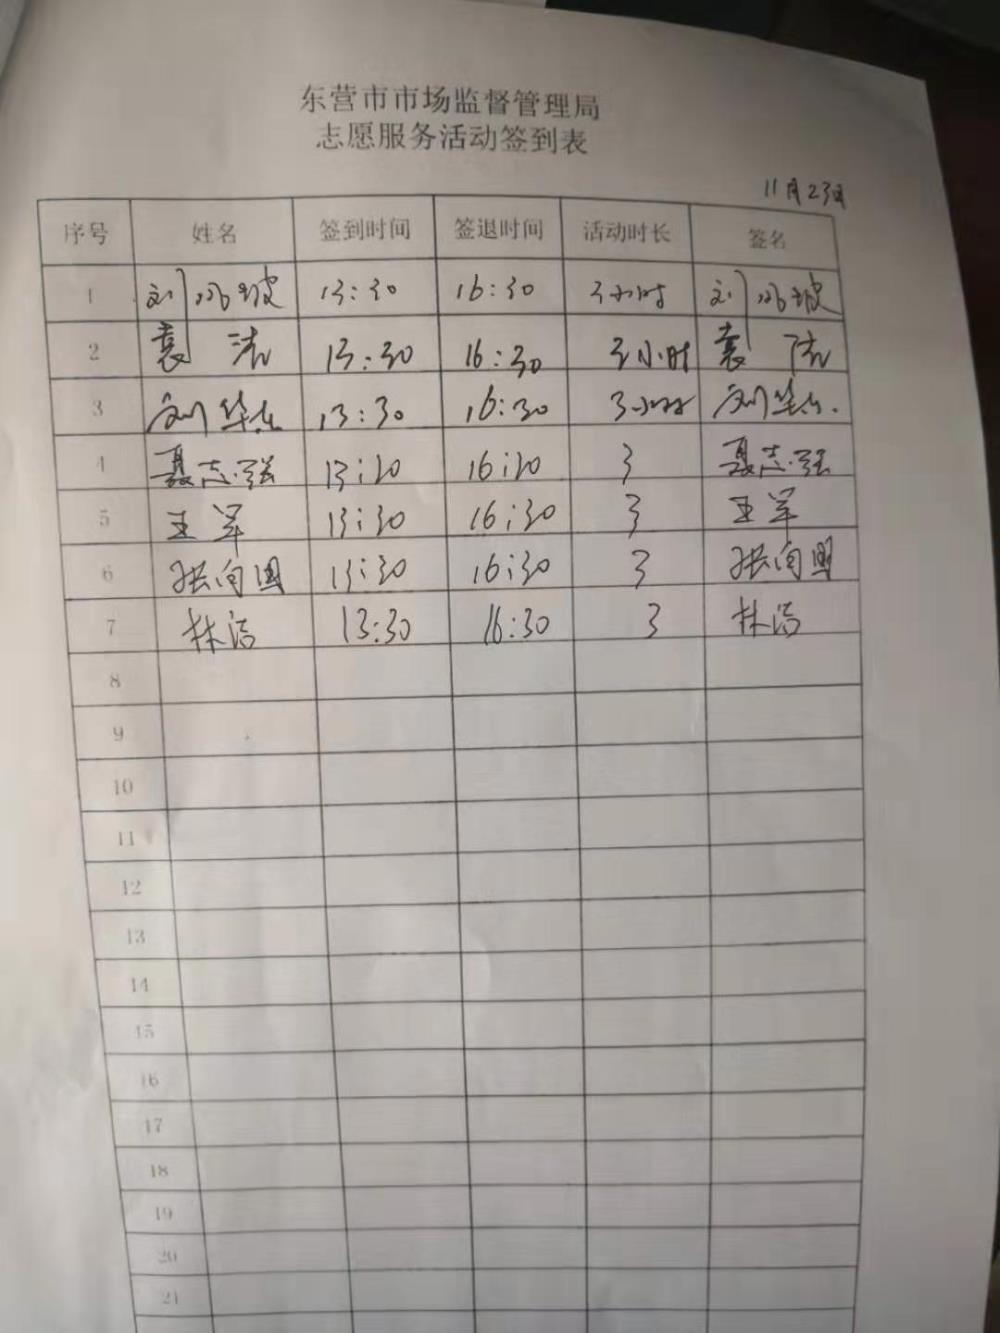 东营市市场监督管理局
志愿服务活动签到表
11月23日
序号 姓名 签到时间 签退时间 活动时长 签名
1 刘 13:30 16:30 3小时 刘
2 袁 13:30 16:30 3小时 袁
3 刘华 13:30 16:30 3小时 刘华
4 聂志强 13:30 16:30 3 聂志强
5 王军 13:30 16:30 3 王军
6 张向国 13:30 16:30 3 张向国
7 林洁 13:30 16:30 3 林洁
8
9
10
11
12
13
14
15
16
17
18
19
20
21